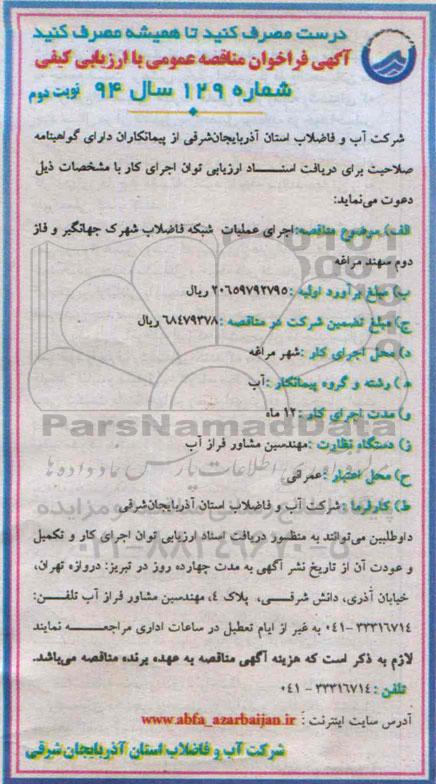 درست مصرف کنید تا همیشه مصرف کنید
آگهی فراخوان مناقصه عمومی با ارزیابی کیفی
شماره ۱۲۹ سال ۹۴ نوبت دوم
شرکت آب و فاضلاب استان آذربایجان‌شرقی از پیمانکاران دارای گواهینامه
صلاحیت برای دریافت اسنـــاد ارزیابی توان اجرای کار با مشخصات ذیل
دعوت می‌نماید:
الف) موضوع مناقصه:اجرای عملیات شبکه فاضلاب شهرک جهانگیر و فاز
دوم سهند مراغه
ب) مبلغ برآورد اولیه :۲۰۶۵۹۷۹۲۷۹۵ ریال
ج) مبلغ تضمین شرکت در مناقصه :۶۸۴۷۹۳۷۸ ریال
د) محل اجرای کار :شهر مراغه
ه) رشته و گروه پیمانکار :آب
و) مدت اجرای کار :۱۲ ماه
ز) دستگاه نظارت :مهندسین مشاور فراز آب
ParsNamadData
ح) محل اعتبار :عمرانی
ط) کارفرما: شرکت آب و فاضلاب استان آذربایجان‌شرقی
داوطلبین می‌توانند به منظسور دریافت اسناد ارزیابی توان اجرای کار و تکمیل
و عودت آن از تاریخ نشر آگهی به مدت چهارده روز در تبریز: دروازه تهران،
خیابان آذری، دانش شرقـــی، پلاک ۴، مهندسین مشاور فراز آب تلفـــن:
۳۳۳۱۶۷۱۴ -۰۴۱ به غیر از ایام تعطیل در ساعات اداری مراجعـــه نمایند
لازم به ذکر است که هزینه آگهی مناقصه به عهده برنده مناقصه می‌باشد.
تلفن : ۳۳۳۱۶۷۱۴ - ۰۴۱
آدرس سایت اینترنت : www.abfa_azarbaijan.ir
شرکت آب و فاضلاب استان آذربایجان شرقی